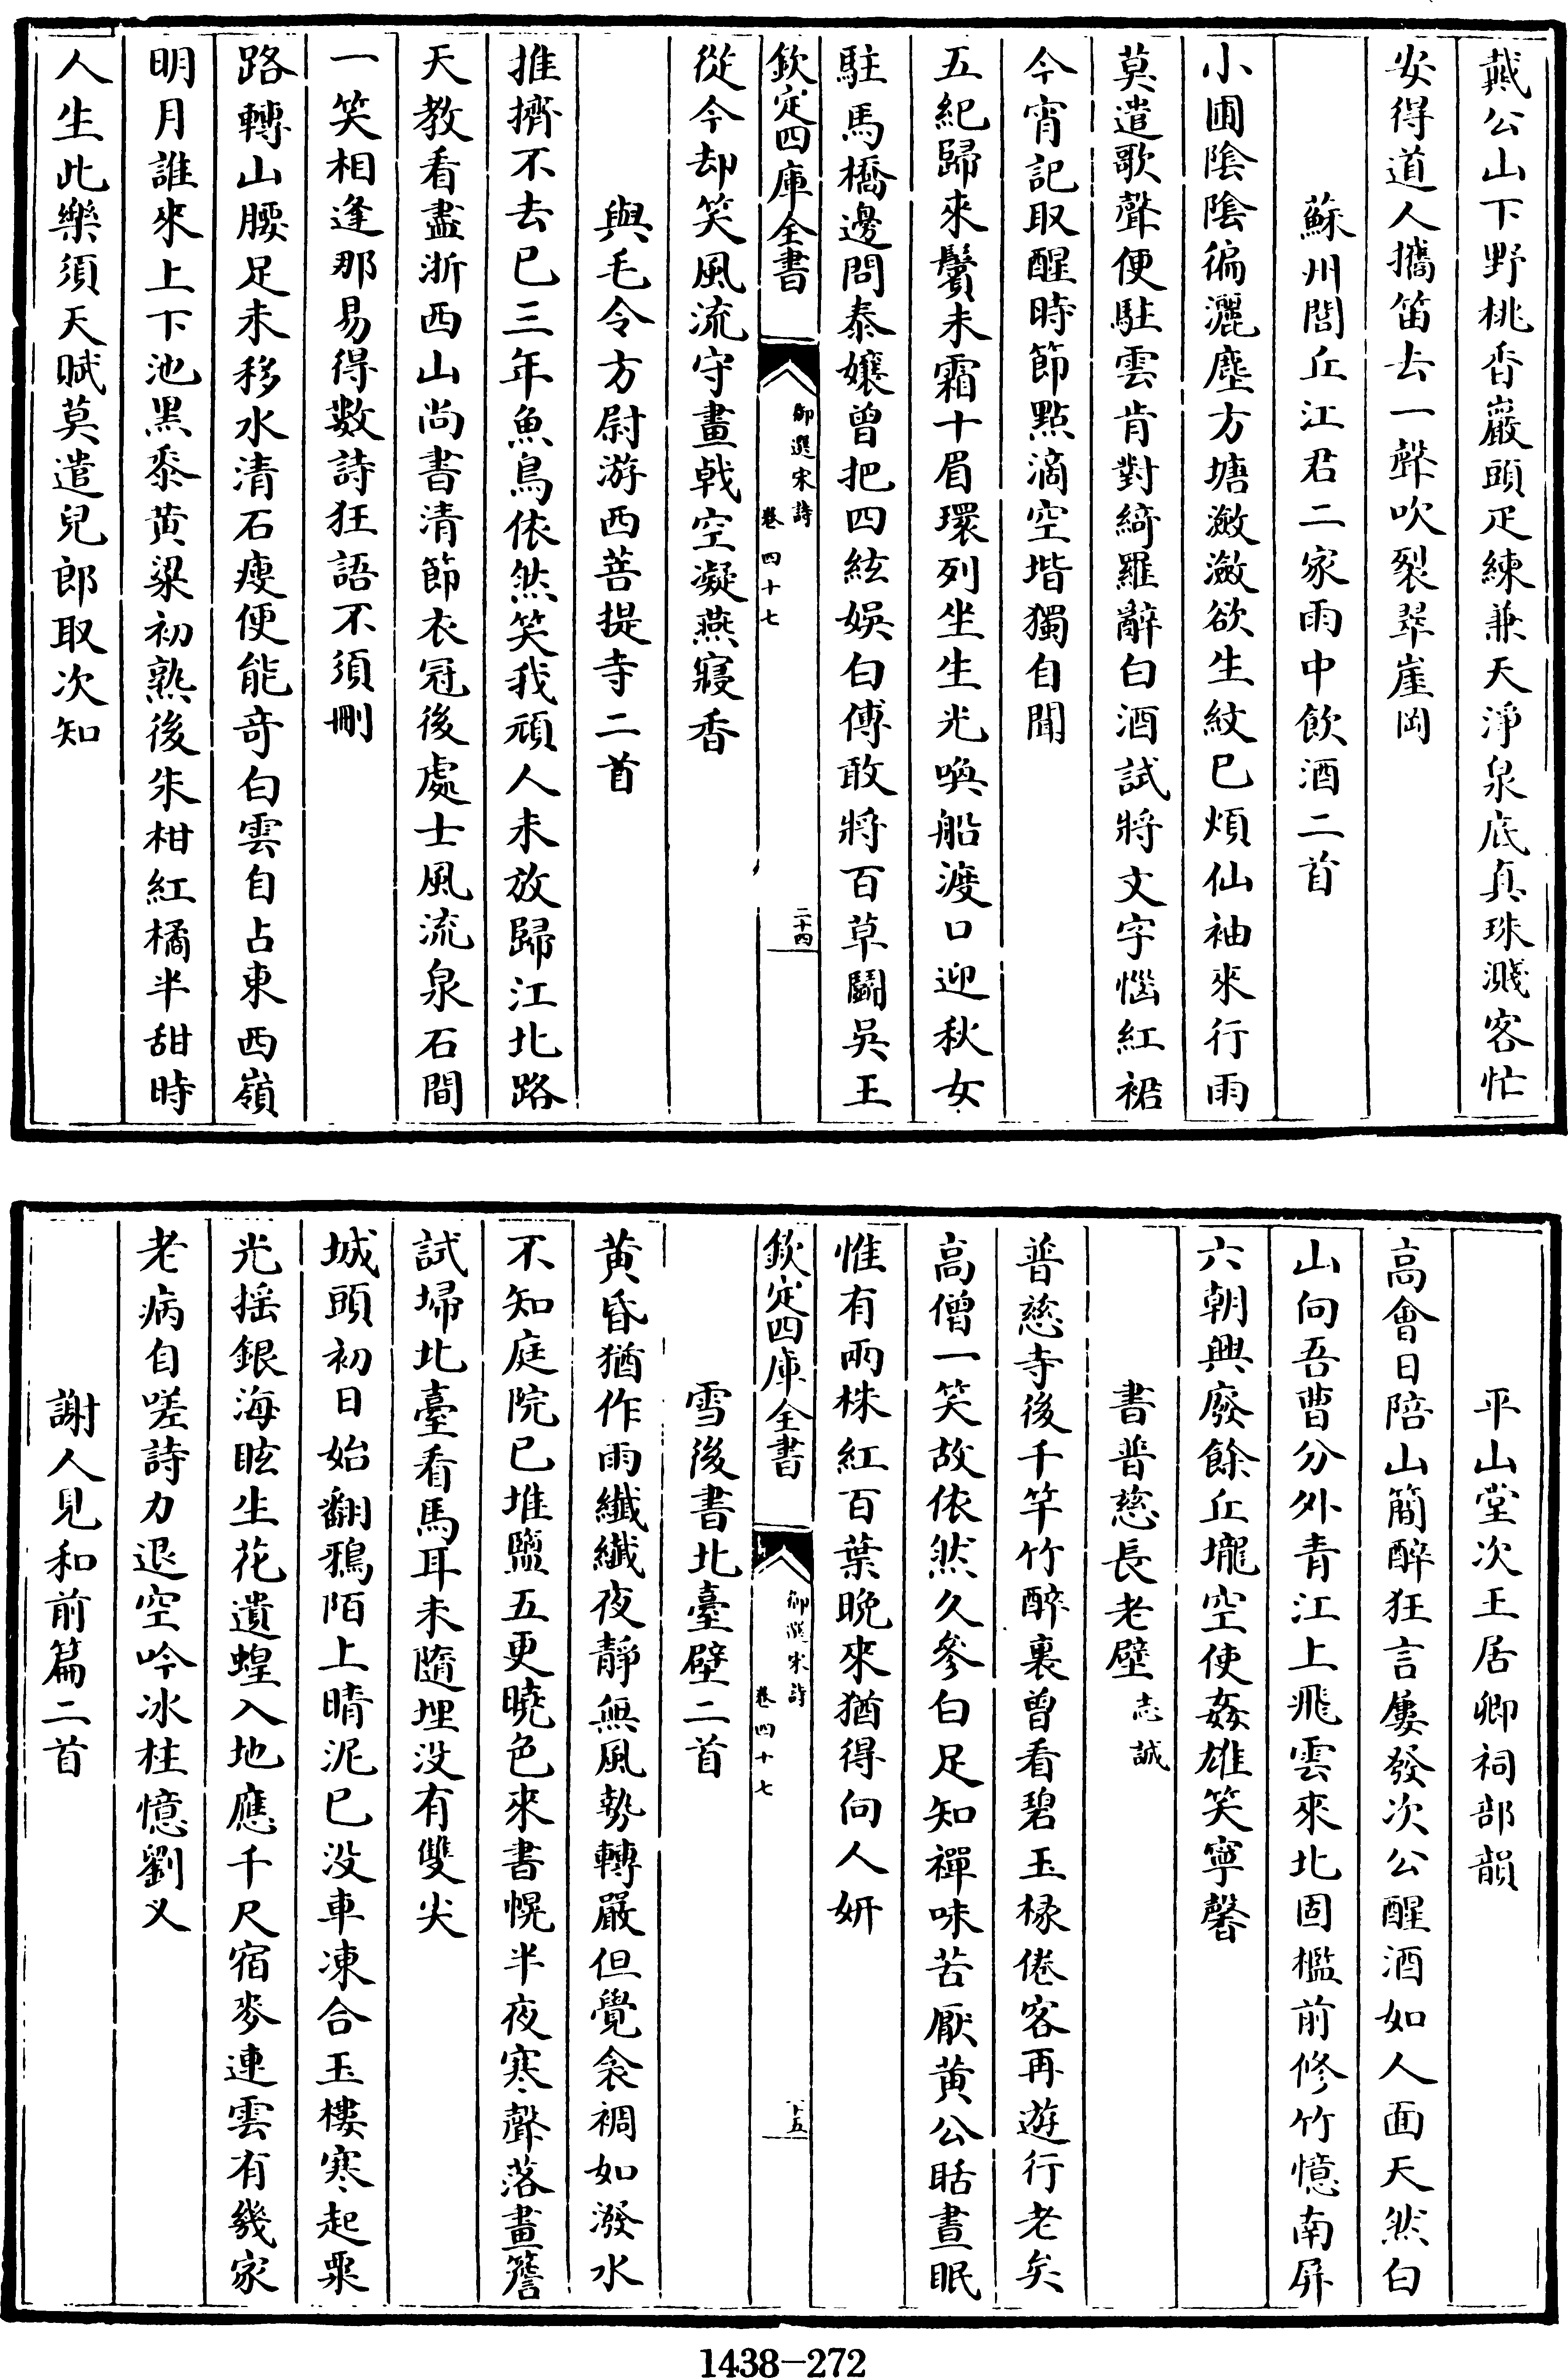 戴公山下野桃香巖頭疋練兼天淨泉底真珠濺客忙
安得道人攜笛去一聲吹裂翠崖岡
蘇州閭丘江君二家雨中飲酒二首
小圃陰陰徧灑塵方塘瀲瀲欲生紋已煩仙袖來行雨
莫遣歌聲便駐雲肯對綺羅辭白酒試將文字惱紅裙
今宵記取醒時節點滴空堦獨自聞
五紀歸來鬢未霜十眉環列坐生光喚船渡口迎秋女
駐馬橋邊問泰嬢曾把四絃娛白傅敢將百草鬬吳王
欽定四庫全書
御選宋詩
卷四十七
二十四
從今却笑風流守畫戟空凝燕寢香
與毛令方尉游西菩提寺二首
推擠不去已三年魚鳥依然笑我頑人未放歸江北路
天教看盡浙西山尚書清節衣冠後處士風流泉石間
一笑相逢那易得數詩狂語不須刪
路轉山腰足未移水清石瘦便能奇白雲自占東西嶺
明月誰來上下池黑黍黃粱初熟後朱柑紅橘半甜時
人生此樂須天賦莫遣兒郎取次知
平山堂次王居卿祠部韻
高會日陪山簡醉狂言屢發次公醒酒如人面天然白
山向吾曹分外青江上飛雲來北固檻前修竹憶南屏
六朝興廢餘丘壠空使姦雄笑寧馨
書普慈長老壁志誠
普慈寺後千竿竹醉裏曾看碧玉椽倦客再遊行老矣
高僧一笑故依然久參白足知禪味苦厭黃公聒晝眠
惟有兩株紅百葉晚來猶得向人妍
欽定四庫全書
御選宋詩
卷四十七
十五
雪後書北臺壁二首
黃昏猶作雨纖纖夜靜無風勢轉嚴但覺衾裯如潑水
不知庭院已堆鹽五更曉色來書幌半夜寒聲落畫簷
試埽北臺看馬耳未隨埋沒有雙尖
城頭初日始翻鴉陌上晴泥已沒車凍合玉樓寒起粟
光搖銀海眩生花遺蝗入地應千尺宿麥連雲有幾家
老病自嗟詩力退空吟冰柱憶劉义
謝人見和前篇二首
1438-272